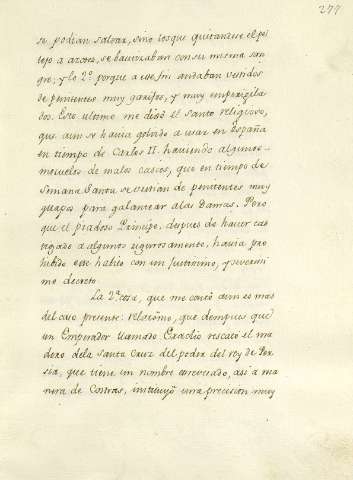 277
se podian salvar, sino los que quitandose el pe-
llejo a azotes, se bautizaban con su misma san-
gre; y lo 2º. porque a ese fin andaban vestidos
de penitentes muy garifos, y muy emperegila-
dos. Esto ultimo me dixo el santo religioso,
que aun se havia golpado a usar en España
en tiempo de Carlos II. haviendo algunos
mozuelos de malos cascos, que en tiempo de
Semana Santa se vestian de penitentes muy
guapos para galantear a las Damas. Pero
que el piadoso Principe, despues de haver cas-
tigado a algunos rigorosamente, havia pro
hibido este habito con un justisimo, y severisi
mo decreto.
La 2ª cosa, que me contó aun es mas
del caso presente: relatóme, que dempues que
un Emperador llamado Eraclio rescató el ma
dero de la Santa Cruz del poder del rey de Per
sia, que tiene un nombre enrevesado, asi a ma
nera de Contras, instituyó una precesion muy